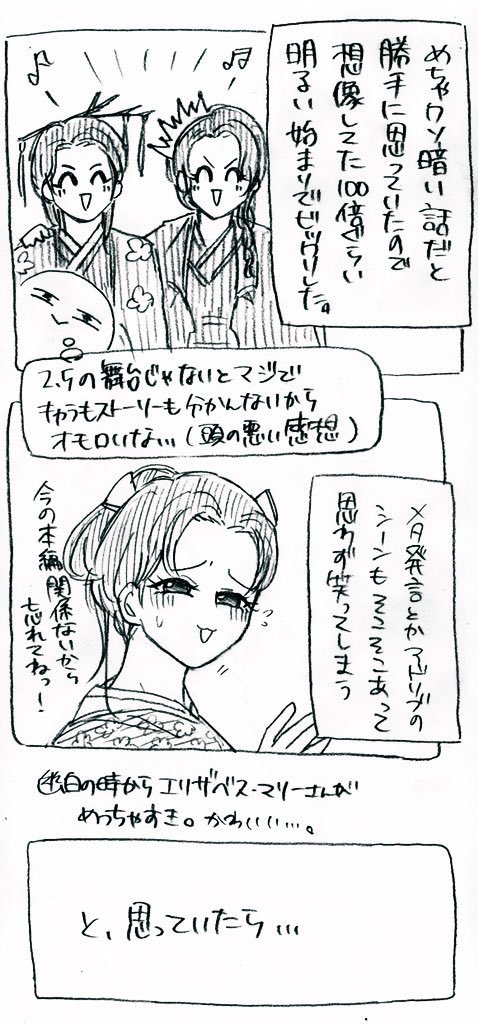 めちゃクソ暗い話だと
勝手に思っていたので
想像してた100倍ぐらい
明るい始まりでビックリした。
2.5の舞台じゃないとマジで
キャラもストーリーも分かんないから
オモロいな…(頭の悪い感想)
メタ発言とかアドリブの
シーンもそこそこあって
思わず笑ってしまう
今の本編関係ないから
忘れてねっ!
幽白の時からエリザベス・マリーさんが
めっちゃすき。かわいい…。
と、思っていたら…